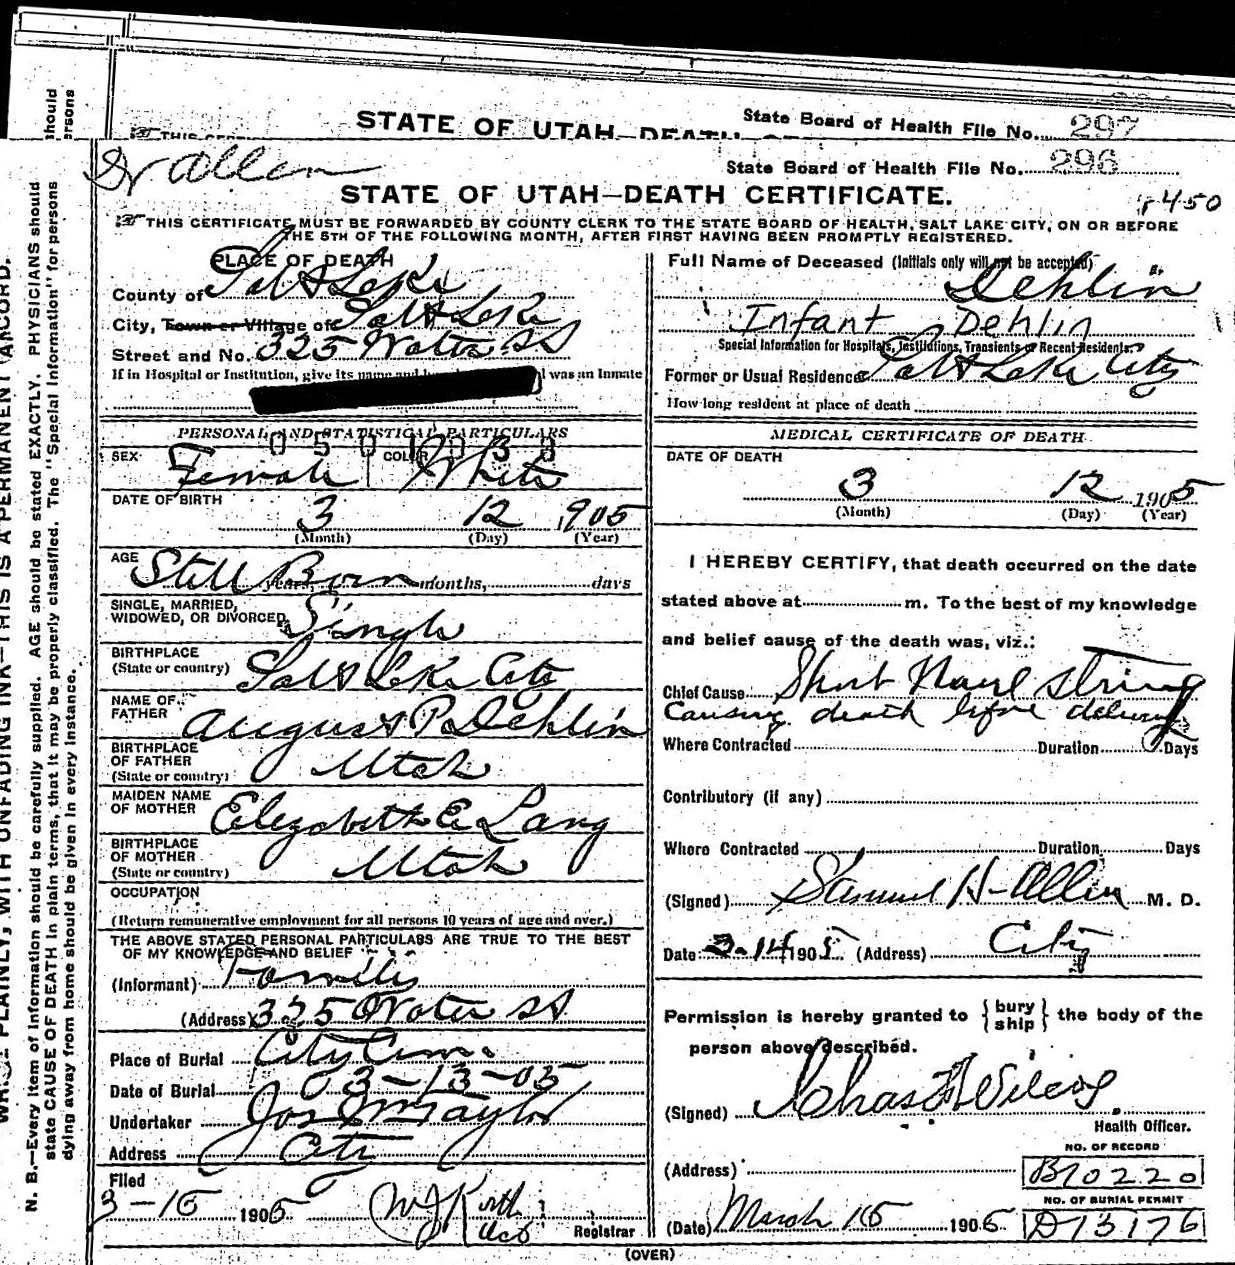 State Board of Health File No. 297
STATE OF UTAH—DEATH
Dr Allen
State Board of Health File No. 296
STATE OF UTAH—DEATH CERTIFICATE.
450
THIS CERTIFICATE MUST BE FORWARDED BY COUNTY CLERK TO THE STATE BOARD OF HEALTH, SALT LAKE CITY, ON OR BEFORE
THE 5TH OF THE FOLLOWING MONTH, AFTER FIRST HAVING BEEN PROMPTLY REGISTERED.
PLACE OF DEATH
County of Salt Lake
City, Town or Village of Salt Lake
Street and No. 325 Water St
If in Hospital or Institution, give its name and was an Inmate
PERSONAL AND STATISTICAL PARTICULARS
SEX Female COLOR White
DATE OF BIRTH
3 12 1905
(Month) (Day) (Year)
AGE Still Born years, months, days
SINGLE, MARRIED,
WIDOWED, OR DIVORCED Single
BIRTHPLACE
(State or country) Salt Lake City
NAME OF
FATHER August P. Dehlin
BIRTHPLACE
OF FATHER
(State or country) Utah
MAIDEN NAME
OF MOTHER Elezabeth E Lang
BIRTHPLACE
OF MOTHER
(State or country) Utah
OCCUPATION
(Return remunerative employment for all persons 10 years of age and over.)
THE ABOVE STATED PERSONAL PARTICULARS ARE TRUE TO THE BEST
OF MY KNOWLEDGE AND BELIEF
(Informant) Family
(Address) 325 Water St
Place of Burial City Cem.
Date of Burial 3-13-05
Undertaker Jos Wm Taylor
Address City
Filed
3-15 1905 Registrar
Full Name of Deceased (Initials only will not be accepted)
Dehlin
Infant Dehlin
Special Information for Hospitals, Institutions, Transients or Recent Residents.
Former or Usual Residence Salt Lake City
How long resident at place of death
MEDICAL CERTIFICATE OF DEATH
DATE OF DEATH
3 12 1905
(Month) (Day) (Year)
I HEREBY CERTIFY, that death occurred on the date
stated above at m. To the best of my knowledge
and belief cause of the death was, viz.:
Chief Cause Short Navel String
Causing death before delivery
Where Contracted Duration Days
Contributory (if any)
Where Contracted Duration Days
(Signed) Samuel H. Allen M. D.
Date 3-14 1905 (Address) City
Permission is hereby granted to {bury ship} the body of the
person above described.
(Signed) Chas F Wilcox
Health Officer.
(Address)
NO. OF RECORD
B10220
NO. OF BURIAL PERMIT
D13176
(Date) March 15 1905
(OVER)
N. B.—Every item of information should be carefully supplied. AGE should be stated EXACTLY. PHYSICIANS should
state CAUSE OF DEATH in plain terms, that it may be properly classified. The "Special Information" for persons
dying away from home should be given in every instance.
PLAINLY, WITH UNFADING INK—THIS IS A PERMANENT